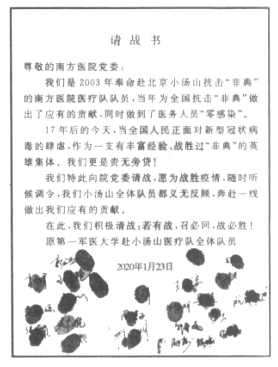 请战书
尊敬的南方医院党委：
我们是2003年奉命赴北京小汤山抗击“非典”
的南方医院医疗队队员，当年为全国抗击“非典”做
出了应有的贡献，同时做到了医务人员“零感染”。
17年后的今天，当全国人民正面对新型冠状病
毒的肆虐，作为一支有丰富经验、战胜过“非典”的英
雄集体。我们更是责无旁贷！
我们特此向院党委请战，愿为战胜疫情，随时听
候调令，我们小汤山全体队员都义无反顾，奔赴一线
做出我们应有的贡献。
在此，我们积极请战：若有战，召必回，战必胜！
原第一军医大学赴小汤山医疗队全体队员
2020年1月23日